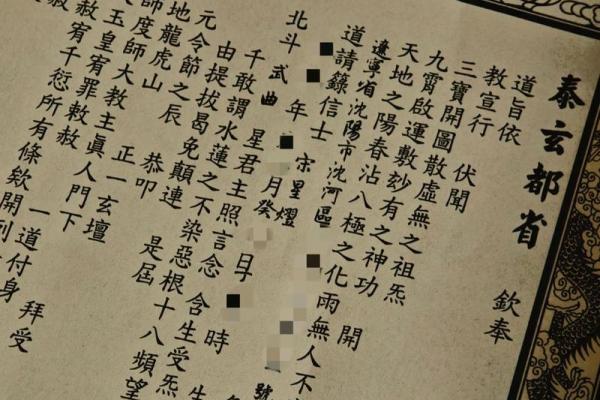 泰玄都省 欽奉
道旨依
教宣行 伏聞
三寶開圖散虛無之祖炁
九霄啟運敷玅有之神功
天地之陽春沾八極之化雨無人不
遼寧省沈陽市沈河區 開
道請籙信士 宋星燿 號
北斗武曲星君主照言念 年 月癸 日 時 生
千敢謂水蓮之不染惡根 含生受炁
由提拔曷免顛連 是屆 十八頻望
元令節之辰 恭叩
地龍虎山 正一玄壇
師度師大教主真人門下
大玉皇宥罪敕赦
赦宥千愆所有條欵開列 一道付身 拜受